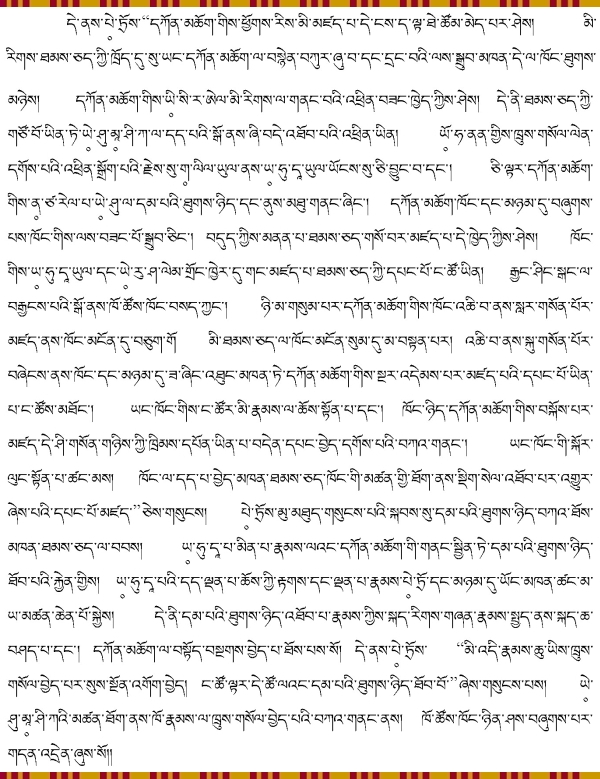 དེ་ནས་པེ་ཏྲོས་“དཀོན་མཆོག་གིས་ཕྱོགས་རིས་མི་མཛད་པ་དེ་ངས་ད་ལྟ་ཐེ་ཚོམ་མེད་པར་ཤེས། མི་
རིགས་ཐམས་ཅད་ཀྱི་ཁྲོད་དུ་སུ་ཡང་དཀོན་མཆོག་ལ་བསྙེན་བཀུར་ཞུ་བ་དང་དྲང་བའི་ལས་སྒྲུབ་མཁན་དེ་ལ་ཁོང་ཐུགས་
མཉེས། དཀོན་མཆོག་གིས་ཡི་སི་ར་ཨེལ་མི་རིགས་ལ་གནང་བའི་འཕྲིན་བཟང་ཁྱེད་ཀྱིས་ཤེས། དེ་ནི་ཐམས་ཅད་ཀྱི་
གཙོ་བོ་ཡིན་ཏེ་ཡེ་ཤུ་མཱ་ཤི་ཀ་ལ་དད་པའི་སྒོ་ནས་ཞི་བདེ་འཐོབ་པའི་འཕྲིན་ཡིན། ཡོ་ཧ་ནན་གྱིས་ཁྲུས་གསོལ་ལེན་
དགོས་པའི་འཕྲིན་སྒྲོག་པའི་རྗེས་སུ་གཱ་ལིལ་ཡུལ་ནས་ཡ་ཧུ་དཱ་ཡུལ་ཡོངས་སུ་ཅི་བྱུང་བ་དང་། ཅི་ལྟར་དཀོན་མཆོག་
གིས་ན་ཙ་རེལ་པ་ཡེ་ཤུ་ལ་དམ་པའི་ཐུགས་ཉིད་དང་ནུས་མཐུ་གནང་ཞིང་། དཀོན་མཆོག་ཁོང་དང་མཉམ་དུ་བཞུགས་
པས་ཁོང་གིས་ལས་བཟང་པོ་སྒྲུབ་ཅིང་། བདུད་ཀྱིས་མནན་པ་ཐམས་ཅད་གསོ་བར་མཛད་པ་དེ་ཁྱེད་ཀྱིས་ཤེས། ཁོང་
གིས་ཡ་ཧུ་དཱ་ཡུལ་དང་ཡེ་རུ་ཤ་ལེམ་གྲོང་ཁྱེར་དུ་གང་མཛད་པ་ཐམས་ཅད་ཀྱི་དཔང་པོ་ང་ཚོ་ཡིན། རྒྱང་ཤིང་སྒང་ལ་
བརྒྱངས་པའི་སྒོ་ནས་ཁོ་ཚོས་ཁོང་བསད་ཀྱང་། ཉི་མ་གསུམ་པར་དཀོན་མཆོག་གིས་ཁོང་འཆི་བ་ནས་སླར་གསོན་པོར་
མཛད་ནས་ཁོང་མངོན་དུ་བཅུག་གོ མི་ཐམས་ཅད་ལ་ཁོང་མངོན་སུམ་དུ་མ་བསྟན་པར། འཆི་བ་ནས་སྐུ་གསོན་པོར་
བཞེངས་ནས་ཁོང་དང་མཉམ་དུ་ཟ་ཞིང་འཐུང་མཁན་ཏེ་དཀོན་མཆོག་གིས་སྔར་འདེམས་པར་མཛད་པའི་དཔང་པོ་ཡིན་
པ་ང་ཚོས་མཐོང་། ཡང་ཁོང་གིས་ང་ཚོར་མི་རྣམས་ལ་ཆོས་སྟོན་པ་དང་། ཁོང་ཉིད་དཀོན་མཆོག་གིས་བསྐོས་པར་
མཛད་དེ་ཤི་གསོན་གཉིས་ཀྱི་ཁྲིམས་དཔོན་ཡིན་པ་བདེན་དཔང་བྱེད་དགོས་པའི་བཀའ་གནང་། ཡང་ཁོང་གི་སྐོར་
ལུང་སྟོན་པ་ཚང་མས། ཁོང་ལ་དད་པ་བྱེད་མཁན་ཐམས་ཅད་ཁོང་གི་མཚན་གྱི་ཐོག་ནས་སྡིག་སེལ་འཐོབ་པར་འགྱུར་
ཞེས་པའི་དཔང་པོ་མཛད་”ཅེས་གསུངས། པེ་ཏྲོས་མུ་མཐུད་གསུངས་པའི་སྐབས་སུ་དམ་པའི་ཐུགས་ཉིད་བཀའ་ཐོས་
མཁན་ཐམས་ཅད་ལ་བབས། ཡ་ཧུ་དཱ་པ་མིན་པ་རྣམས་ལའང་དཀོན་མཆོག་གི་གནང་སྦྱིན་ཏེ་དམ་པའི་ཐུགས་ཉིད་
ཐོབ་པའི་རྐྱེན་གྱིས། ཡ་ཧུ་དཱ་པའི་དད་ལྡན་པ་ཆོས་ཀྱི་རྟགས་དང་ལྡན་པ་རྣམས་པེ་ཏྲོ་དང་མཉམ་དུ་ཡོང་མཁན་ཚང་མ་
ཡ་མཚན་ཆེན་པོ་སྐྱེས། དེ་ནི་དམ་པའི་ཐུགས་ཉིད་འཐོབ་པ་རྣམས་ཀྱིས་སྐད་རིགས་གཞན་རྣམས་སྤྱད་ནས་སྐད་ཆ་
བཤད་པ་དང་། དཀོན་མཆོག་ལ་བསྟོད་བསྔགས་བྱེད་པ་ཐོས་པས་སོ། དེ་ནས་པེ་ཏྲོས་ “མི་འདི་རྣམས་ཆུ་ཡིས་ཁྲུས་
གསོལ་བྱེད་པར་སུས་སྔོན་འགོག་བྱེད། ང་ཚོ་ལྟར་དེ་ཚོ་ལའང་དམ་པའི་ཐུགས་ཉིད་ཐོབ་བོ་”ཞེས་གསུངས་པས། ཡེ་
ཤུ་མཱ་ཤི་ཀའི་མཚན་ཐོག་ནས་ཁོ་རྣམས་ལ་ཁྲུས་གསོལ་བྱེད་པའི་བཀའ་གནང་ནས། ཁོ་ཚོས་ཁོང་ཉིན་ཤས་བཞུགས་པར་
གདན་འདྲེན་ཞུས་སོ།།